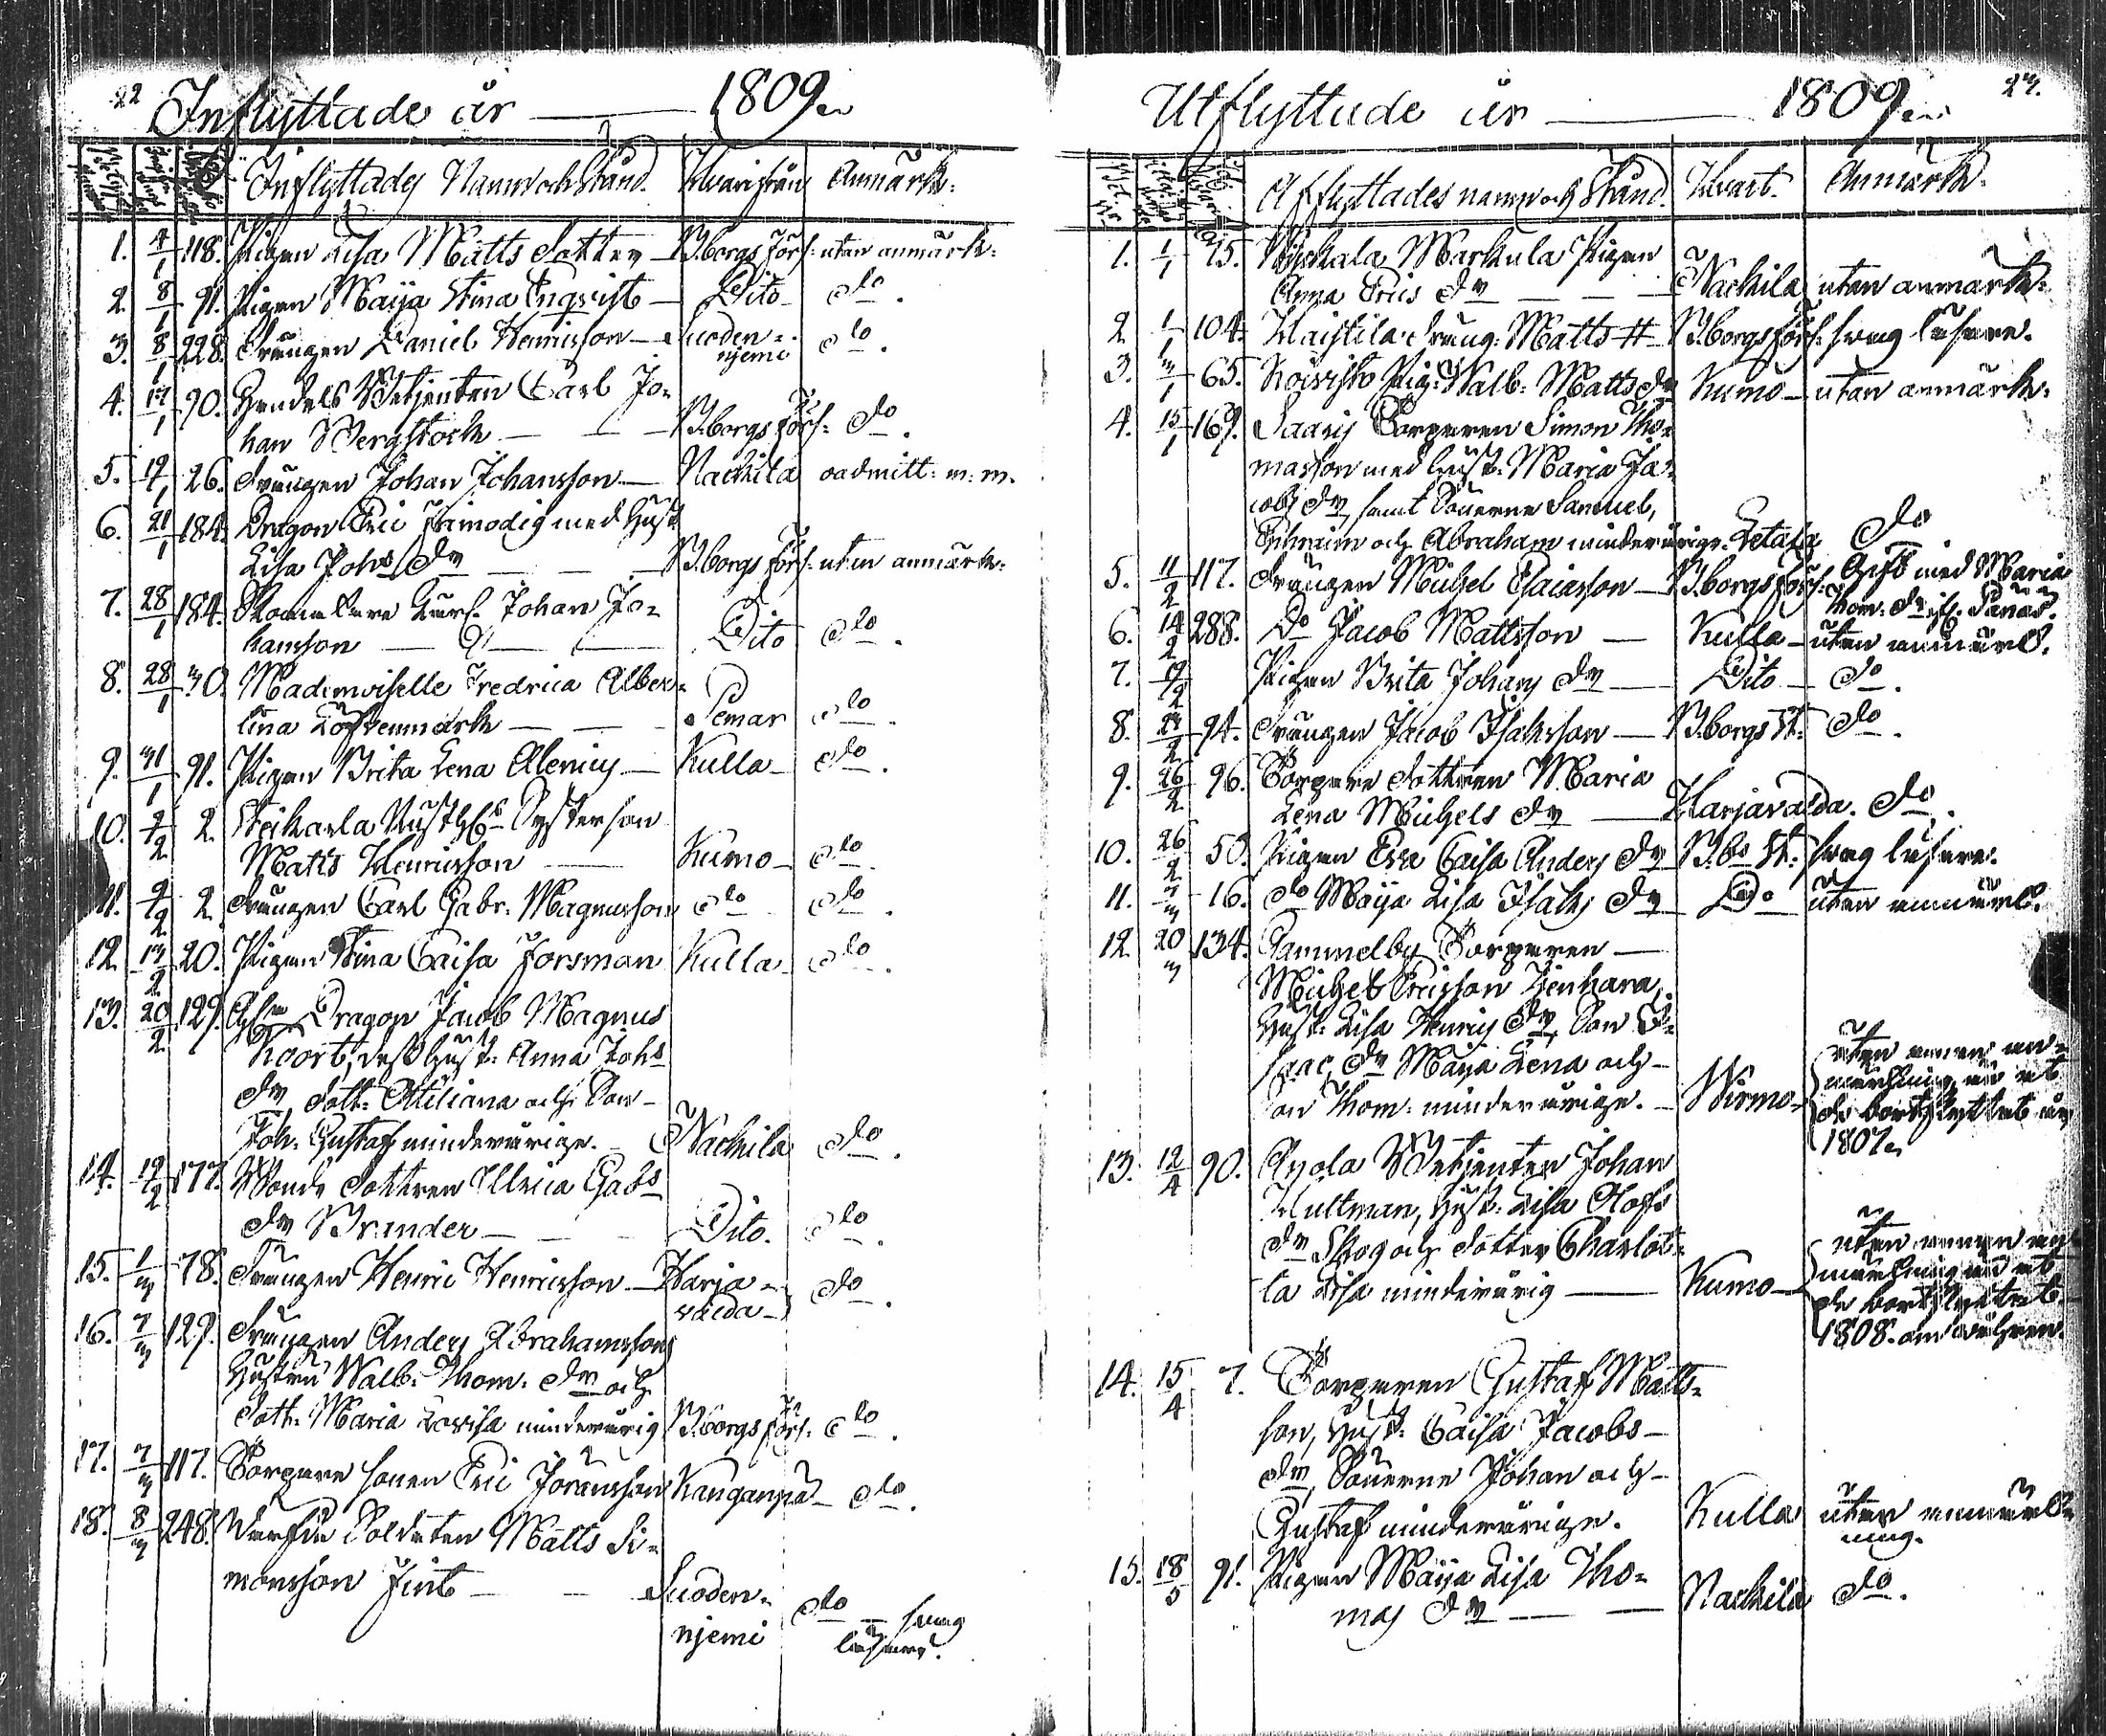 22
Inflyttade år 1809
Inflyttades Namn och Stånd. Hvarifrån Anmärk:
1. 4/1 118. Pigan Lisa Matts dotter B:borgs förs: utan anmärk:
2. 8/1 91. Pigan Maija Stina Enqvist Dito do.
3. 8/1 228. Drängen Daniel Henricsson Suoden-
niemi do.
4. 17/1 90. Betjenten Carl Jo-
han Bergstock B:borgs förs: do.
5. 19/1 26. Drängen Johan Johansson Nackila oadmitt: m: m.
6. 21/1 184. Dragon Eric Frimodig med Hust
Lisa Johs dr B:borgs förs: utan anmärk:
7. 28/1 184. Skomakare Johan Jo-
hansson Dito do.
8. 28/1 30. Mademoiselle Fredrica Alber-
tina Löfvenmark Pemar do.
9. 31/1 91. Pigan Brita Lena Alenius Kulla do.
10. 2/2 2. Systerson
Matts Henricsson Kumo do
11. 9/2 2. Drängen Carl Gabr. Magnusson do do.
12. 13/2 20. Pigan Stina Caisa Forsman Kulla do.
13. 20/2 129. Dragon Jacob Magnus
Koort, dess Hust: Anna Johs
dr, dott: Ottiliana och Son
Joh: Gustaf minderårige. Nackila do.
14. 19/2 177. Bonde dottren Ulrica Gabs
dr Brander Dito. do.
15. 1/3 78. Drängen Henric Henricsson Harja-
valda do.
16. 7/3 129. Drängen Anders Abrahamsson
Hustru Walb: Thom: dr och
dott: Maria Lovisa minderårig B:borgs förs: do.
17. 7/3 117. Torpare sonen Eric Göransson Kanganpä do.
18. 8/3 248. Soldaten Matts Si-
monsson Fint Suoden-
niemi do svag
läsare.
23.
Utflyttade år 1809
Afflyttades namn och Stånd. Hvart. Anmärk.
1. 1/1 75. Markula Pigan
Anna Erics dr Nackila utan anmärk:
2. 1/1 104. Haistila dräng: Matts H B:borgs förs: svag läsare.
3. 3/1 65. Koivisto Pig: Walb: Matts dr Kumo utan anmärk:
4. 15/1 169. Saaris Torparen Simon Tho-
masson med Hust: Maria Ja-
cobs dr samt Sönerne Samuel,
Ephraim och Abraham minderårige. Letala do
5. 11/2 117. Drängen Michel Esaiasson B:borgs förs: Gift med Maria
Thom: dr
6. 14/2 288. Do Jacob Mattsson Kulla utan anmärk.
7. 19/2 Pigan Brita Johans dr Dito do.
8. 24/2 94. Drängen Jacob Isaksson B:borgs St: do.
9. 26/2 96. Torpare dottren Maria
Lena Michels dr Harjavalda. do.
10. 26/2 50. Pigan Eva Caisa Anders dr B:bs St: svag läsare.
11. 7/3 16. do Maija Lisa Isaks dr Do utan anmärk.
12. 20/3 134. Gammelby Torparen
Michel Ericsson
Hust: Lisa Henrics dr, Son I-
saac, dr Maija Lena och
Son Thom: minderårige. Wirmo utan annan an-
märkning, än at
de bortflyttat år
1807
13. 12/4 90. Betjenten Johan
Hultman, Hust: Lisa Olofs
dr Skog och dotter Charlot-
ta Lisa minderårig Kumo utan annan an-
märkning än at
de bortflyttat
1808.
14. 15/4 7. Torparen Gustaf Matts-
son, Hust: Caisa Jacobs
dr, Sönerne Johan och
Gustaf minderårige. Kulla utan anmärk-
ning.
15. 18/5 91. Pigan Maija Lisa Tho-
mas dr Nackila do.